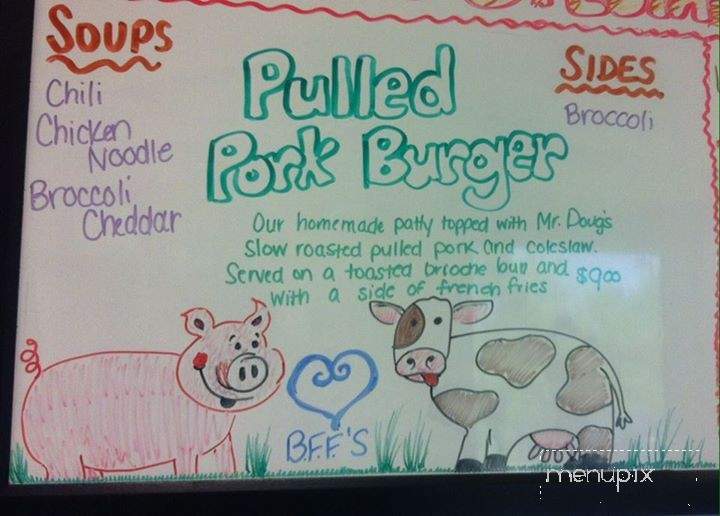 Soups
Chili
Chicken
Noodle
Broccoli
Cheddar
Pulled
Pork Burger
Our homemade patty topped with Mr. Doug's
slow roasted pulled pork and coleslaw.
Served on a toasted brioche bun and $9.00
with a side of french fries
SIDES
Broccoli
B.F.F.'S
menupix